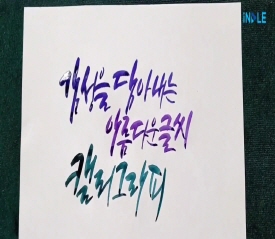 INDLE
감성을 담아내는
아름다운글씨
캘리그라피